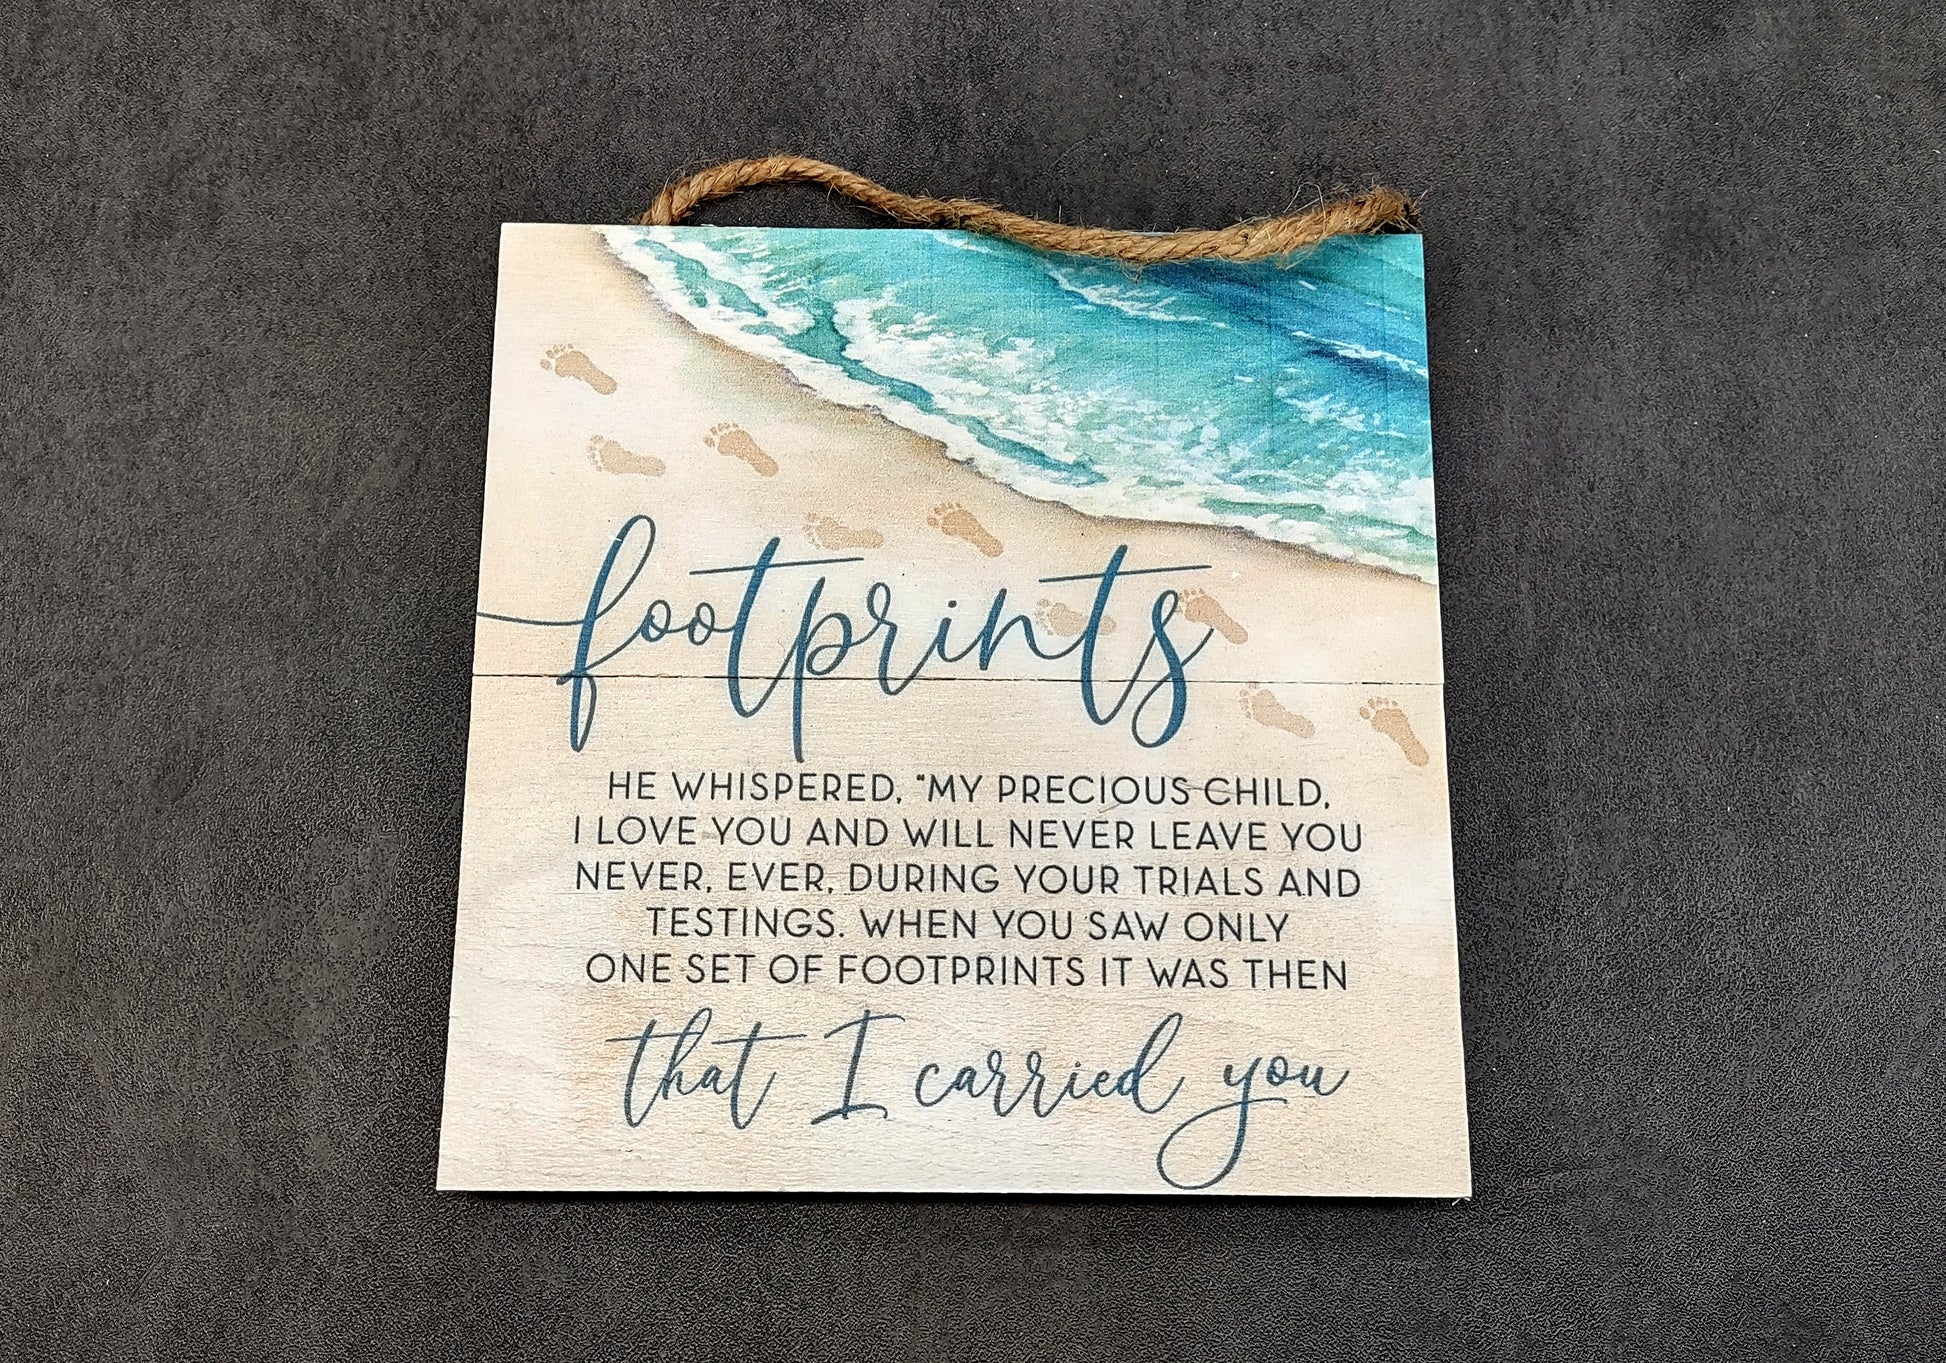 footprints
HE WHISPERED, "MY PRECIOUS CHILD,
I LOVE YOU AND WILL NEVER LEAVE YOU
NEVER, EVER, DURING YOUR TRIALS AND
TESTINGS. WHEN YOU SAW ONLY
ONE SET OF FOOTPRINTS IT WAS THEN
that I carried you